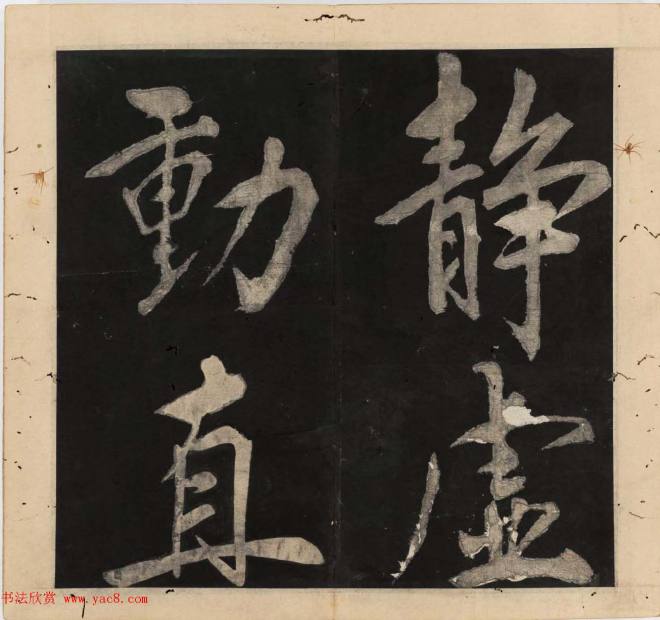 静虚
動真
书法欣赏 www.yac8.com